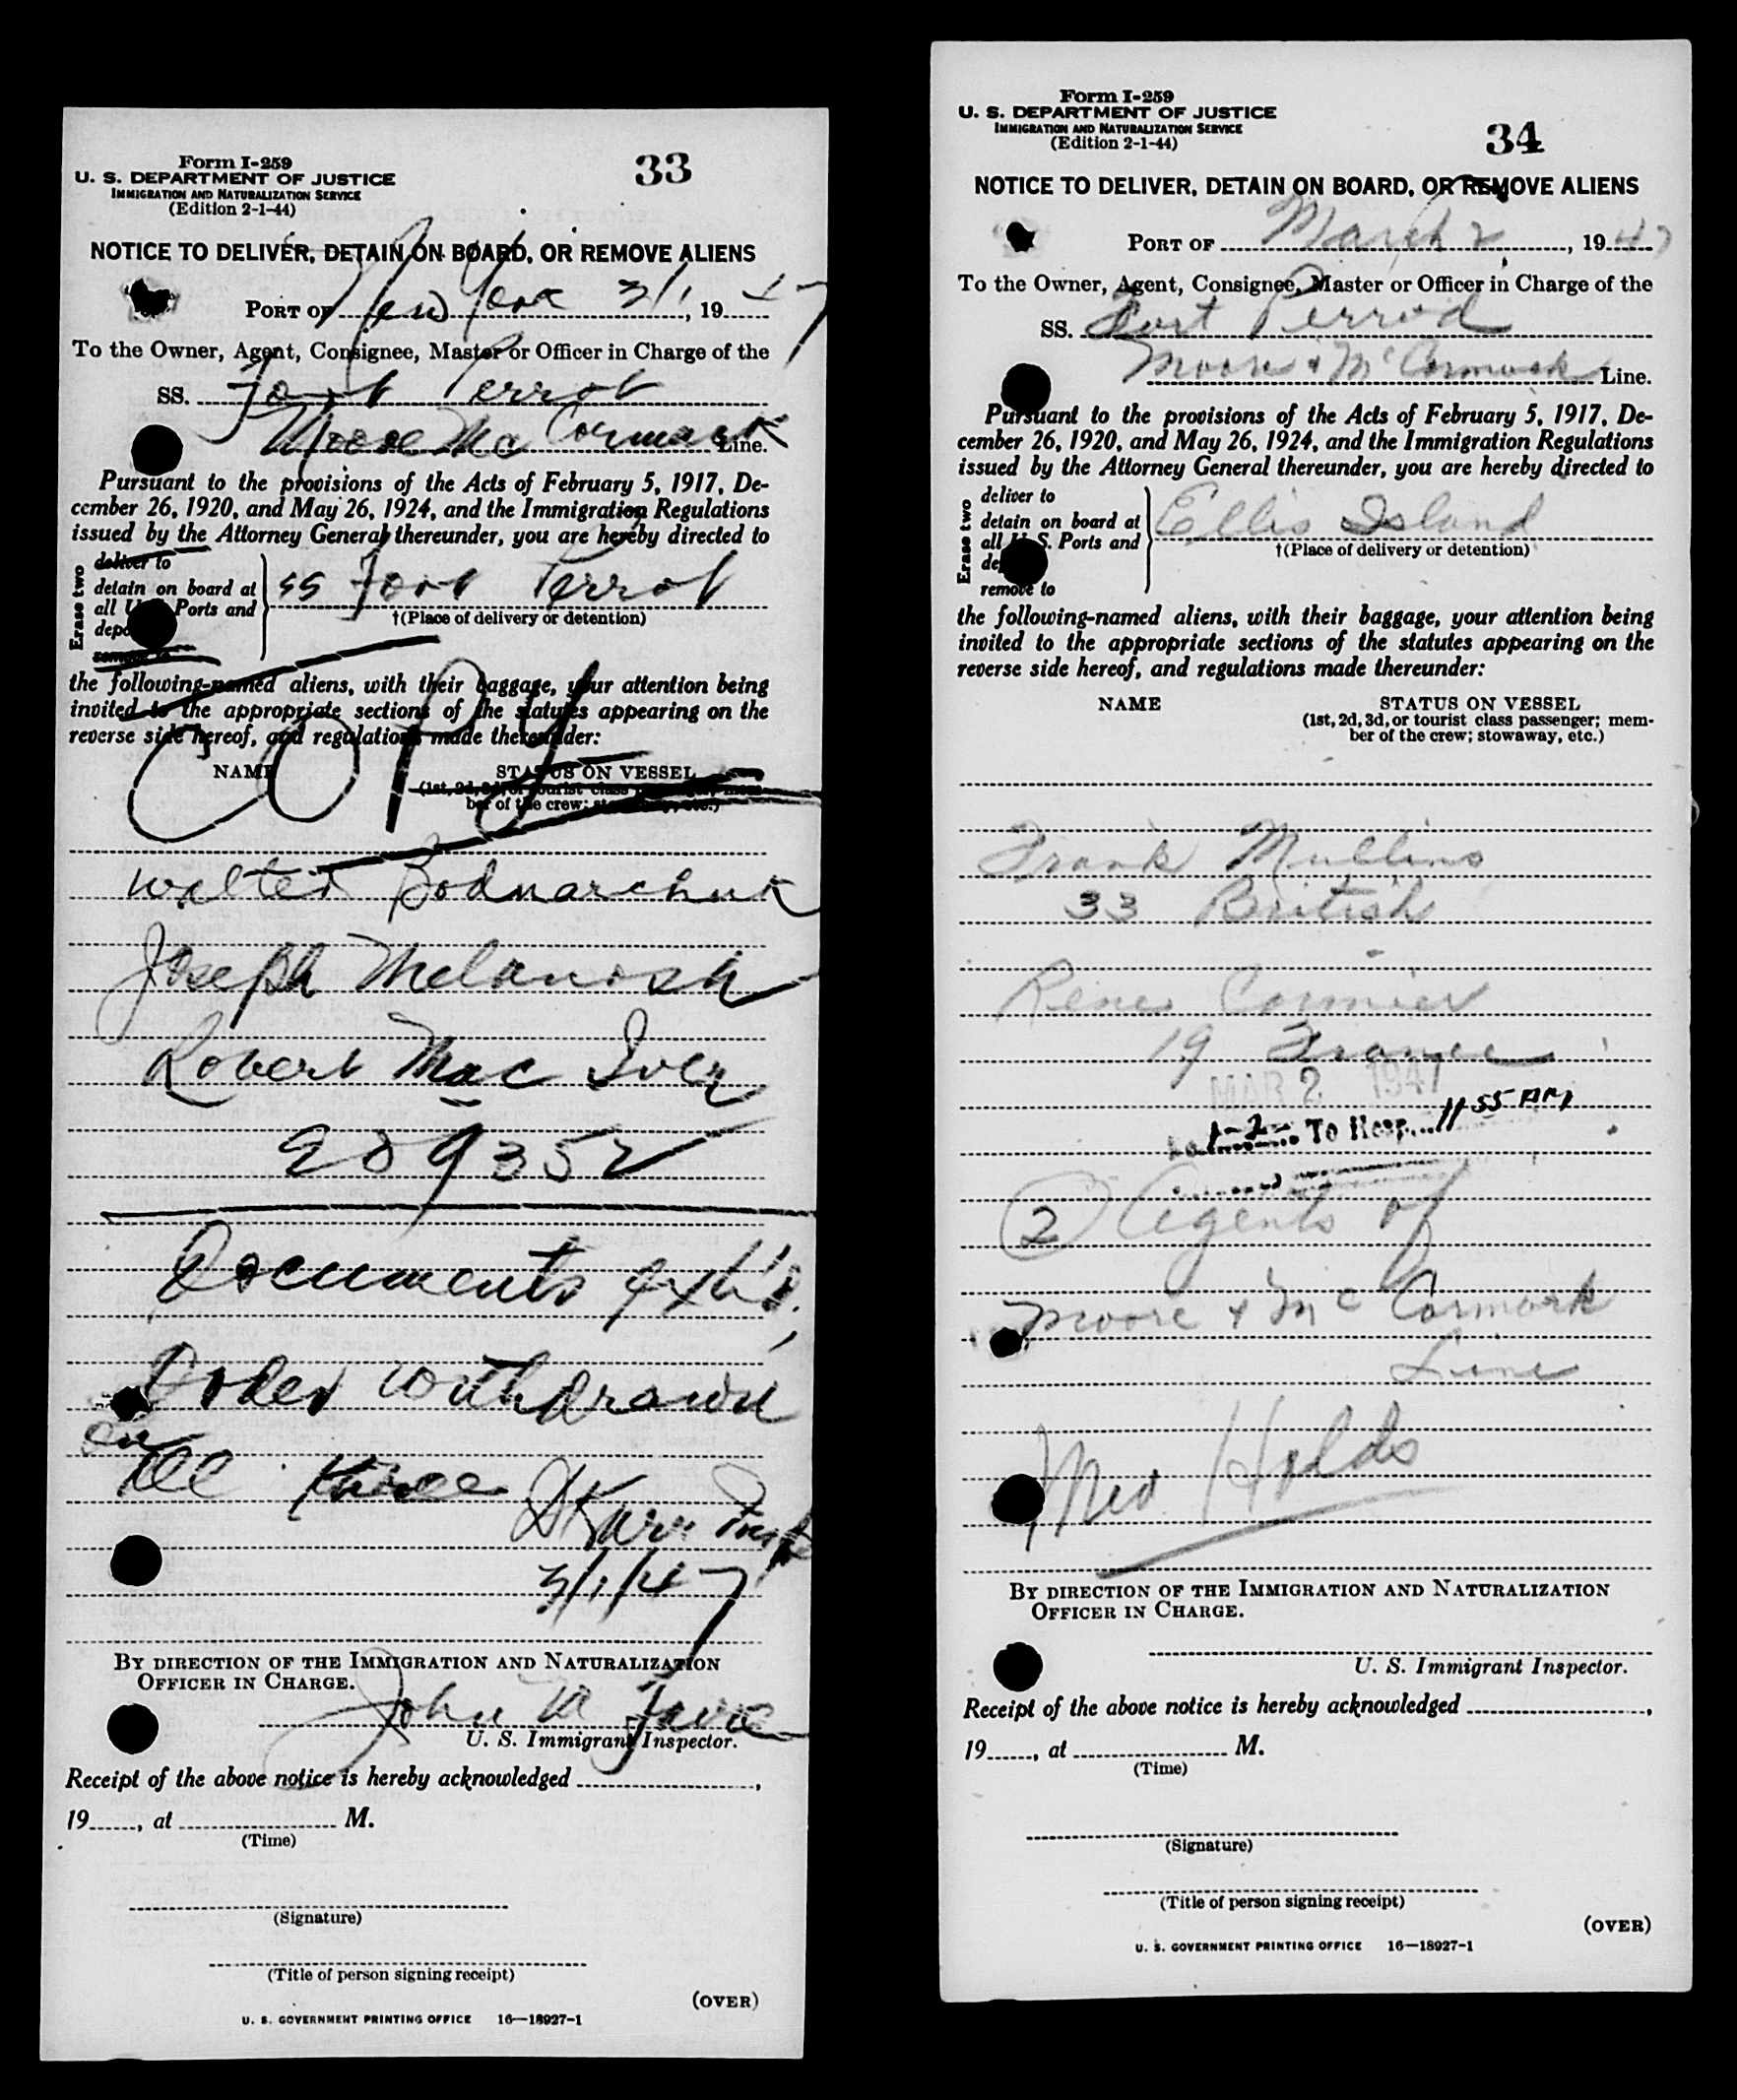 Form I-259
U. S. DEPARTMENT OF JUSTICE
IMMIGRATION AND NATURALIZATION SERVICE
(Edition 2-1-44)
33
NOTICE TO DELIVER, DETAIN ON BOARD, OR REMOVE ALIENS
PORT OF New York 3/1, 1947
To the Owner, Agent, Consignee, Master or Officer in Charge of the
SS. Fort Perrot
Moore Mc Cormack Line.
Pursuant to the provisions of the Acts of February 5, 1917, De-
cember 26, 1920, and May 26, 1924, and the Immigration Regulations
issued by the Attorney General thereunder, you are hereby directed to
Erase two
deliver to
detain on board at
all U. Ports and
remove to
SS Fort Perrot
†(Place of delivery or detention)
the following-named aliens, with their baggage, your attention being
invited to the appropriate sections of the statutes appearing on the
reverse side hereof, and regulations made thereunder:
COPY
NAME
STATUS ON VESSEL
(1st, 2d, 3d, or tourist class passenger; mem-
ber of the crew; stowaway, etc.)
Walter Bodnarchuk
Joseph
Robert Mac Iver
209352
Documents exh'd.
Order withdrawn
on
all three
3/1/47
BY DIRECTION OF THE IMMIGRATION AND NATURALIZATION
OFFICER IN CHARGE.
John M
U. S. Immigrant Inspector.
Receipt of the above notice is hereby acknowledged ,
19 , at M.
(Time)
(Signature)
(Title of person signing receipt)
(OVER)
U. S. GOVERNMENT PRINTING OFFICE 16—18927-1
Form I-259
U. S. DEPARTMENT OF JUSTICE
IMMIGRATION AND NATURALIZATION SERVICE
(Edition 2-1-44)
34
NOTICE TO DELIVER, DETAIN ON BOARD, OR REMOVE ALIENS
PORT OF March 2, 1947
To the Owner, Agent, Consignee, Master or Officer in Charge of the
SS. Fort Perrod
Moore & McCormack Line.
Pursuant to the provisions of the Acts of February 5, 1917, De-
cember 26, 1920, and May 26, 1924, and the Immigration Regulations
issued by the Attorney General thereunder, you are hereby directed to
Erase two
deliver to
detain on board at
all U. S. Ports and
remove to
Ellis Island
†(Place of delivery or detention)
the following-named aliens, with their baggage, your attention being
invited to the appropriate sections of the statutes appearing on the
reverse side hereof, and regulations made thereunder:
NAME
STATUS ON VESSEL
(1st, 2d, 3d, or tourist class passenger; mem-
ber of the crew; stowaway, etc.)
Frank Mullins
33 British
Rene Cormier
19 France
MAR 2 1947
1-2- To Hosp. 11 55 AM
2 Agents of
Moore & Mc Cormark
Line
Med Holds
BY DIRECTION OF THE IMMIGRATION AND NATURALIZATION
OFFICER IN CHARGE.
U. S. Immigrant Inspector.
Receipt of the above notice is hereby acknowledged ,
19 , at M.
(Time)
(Signature)
(Title of person signing receipt)
(OVER)
U. S. GOVERNMENT PRINTING OFFICE 16—18927-1